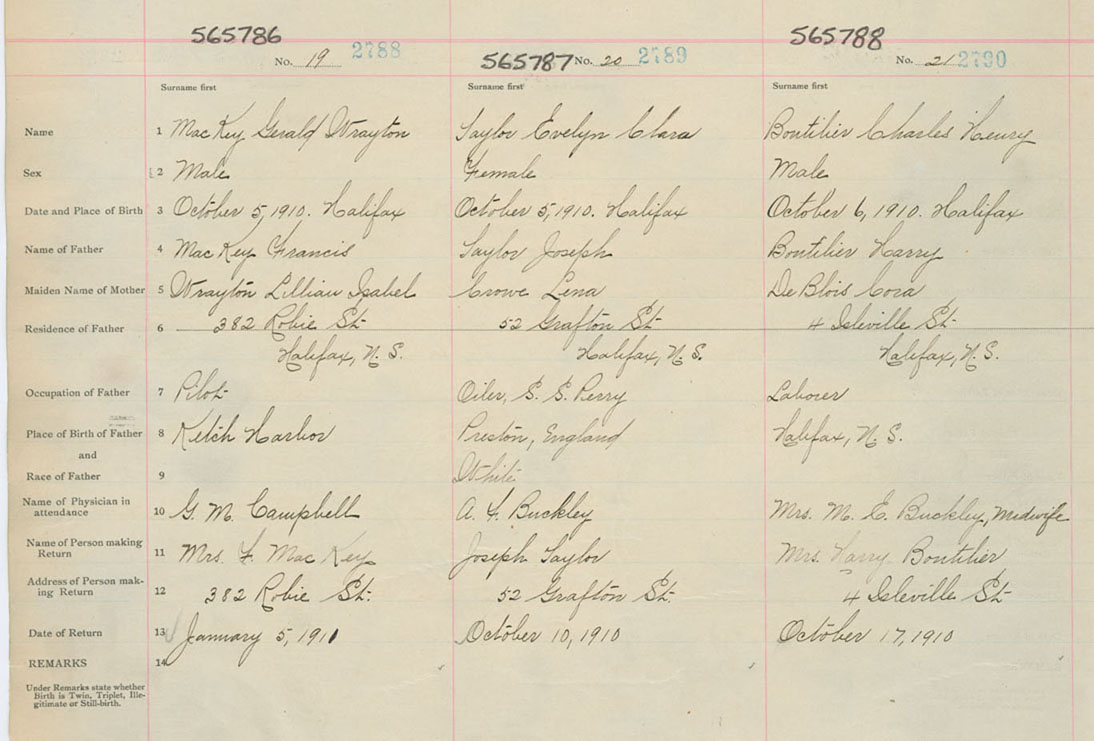 565786
No. 19 2788
565787 No. 20 2789
565788
No. 21 2790
Surname first Surname first Surname first
Name 1 MacKey Gerald Wrayton Taylor Evelyn Clara Boutilier Charles Henry
Sex 2 Male Female Male
Date and Place of Birth 3 October 5, 1910. Halifax October 5, 1910. Halifax October 6, 1910. Halifax
Name of Father 4 MacKey Francis Taylor Joseph Boutilier Harry
Maiden Name of Mother 5 Wrayton Lillian Isabel Crowe Lena DeBlois Cora
Residence of Father 6 382 Robie St. 52 Grafton St. 4 Isleville St.
Halifax, N. S. Halifax, N. S. Halifax, N. S.
Occupation of Father 7 Pilot Oiler, S. S. Perry Laborer
Place of Birth of Father 8 Ketch Harbor Preston, England Halifax, N. S.
and
Race of Father 9 White
Name of Physician in
attendance 10 G. M. Campbell A. F. Buckley Mrs. M. E. Buckley, Midwife
Name of Person making
Return 11 Mrs. F. MacKey Joseph Taylor Mrs. Harry Boutilier
Address of Person mak-
ing Return 12 382 Robie St. 52 Grafton St. 4 Isleville St.
Date of Return 13 January 5, 1911 October 10, 1910 October 17, 1910
REMARKS 14
Under Remarks state whether
Birth is Twin, Triplet, Ille-
gitimate or Still-birth.